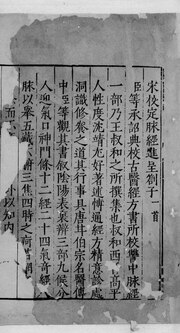 宋校定脉經進呈劄子一首
臣等承詔典校古醫經方書所校讎中脉經
一部乃王叔和之所撰集也叔和西晉高平
人性度沈靖尤好著述博通經方精意診處
洞識修養之道其行事具唐甘伯宗名醫傳
中臣等觀其書叙陰陽表裏辨三部九候分
人迎氣口神門條十二經二十四氣奇經
脉以舉五臟六 三焦四時之痾
而 小以知内